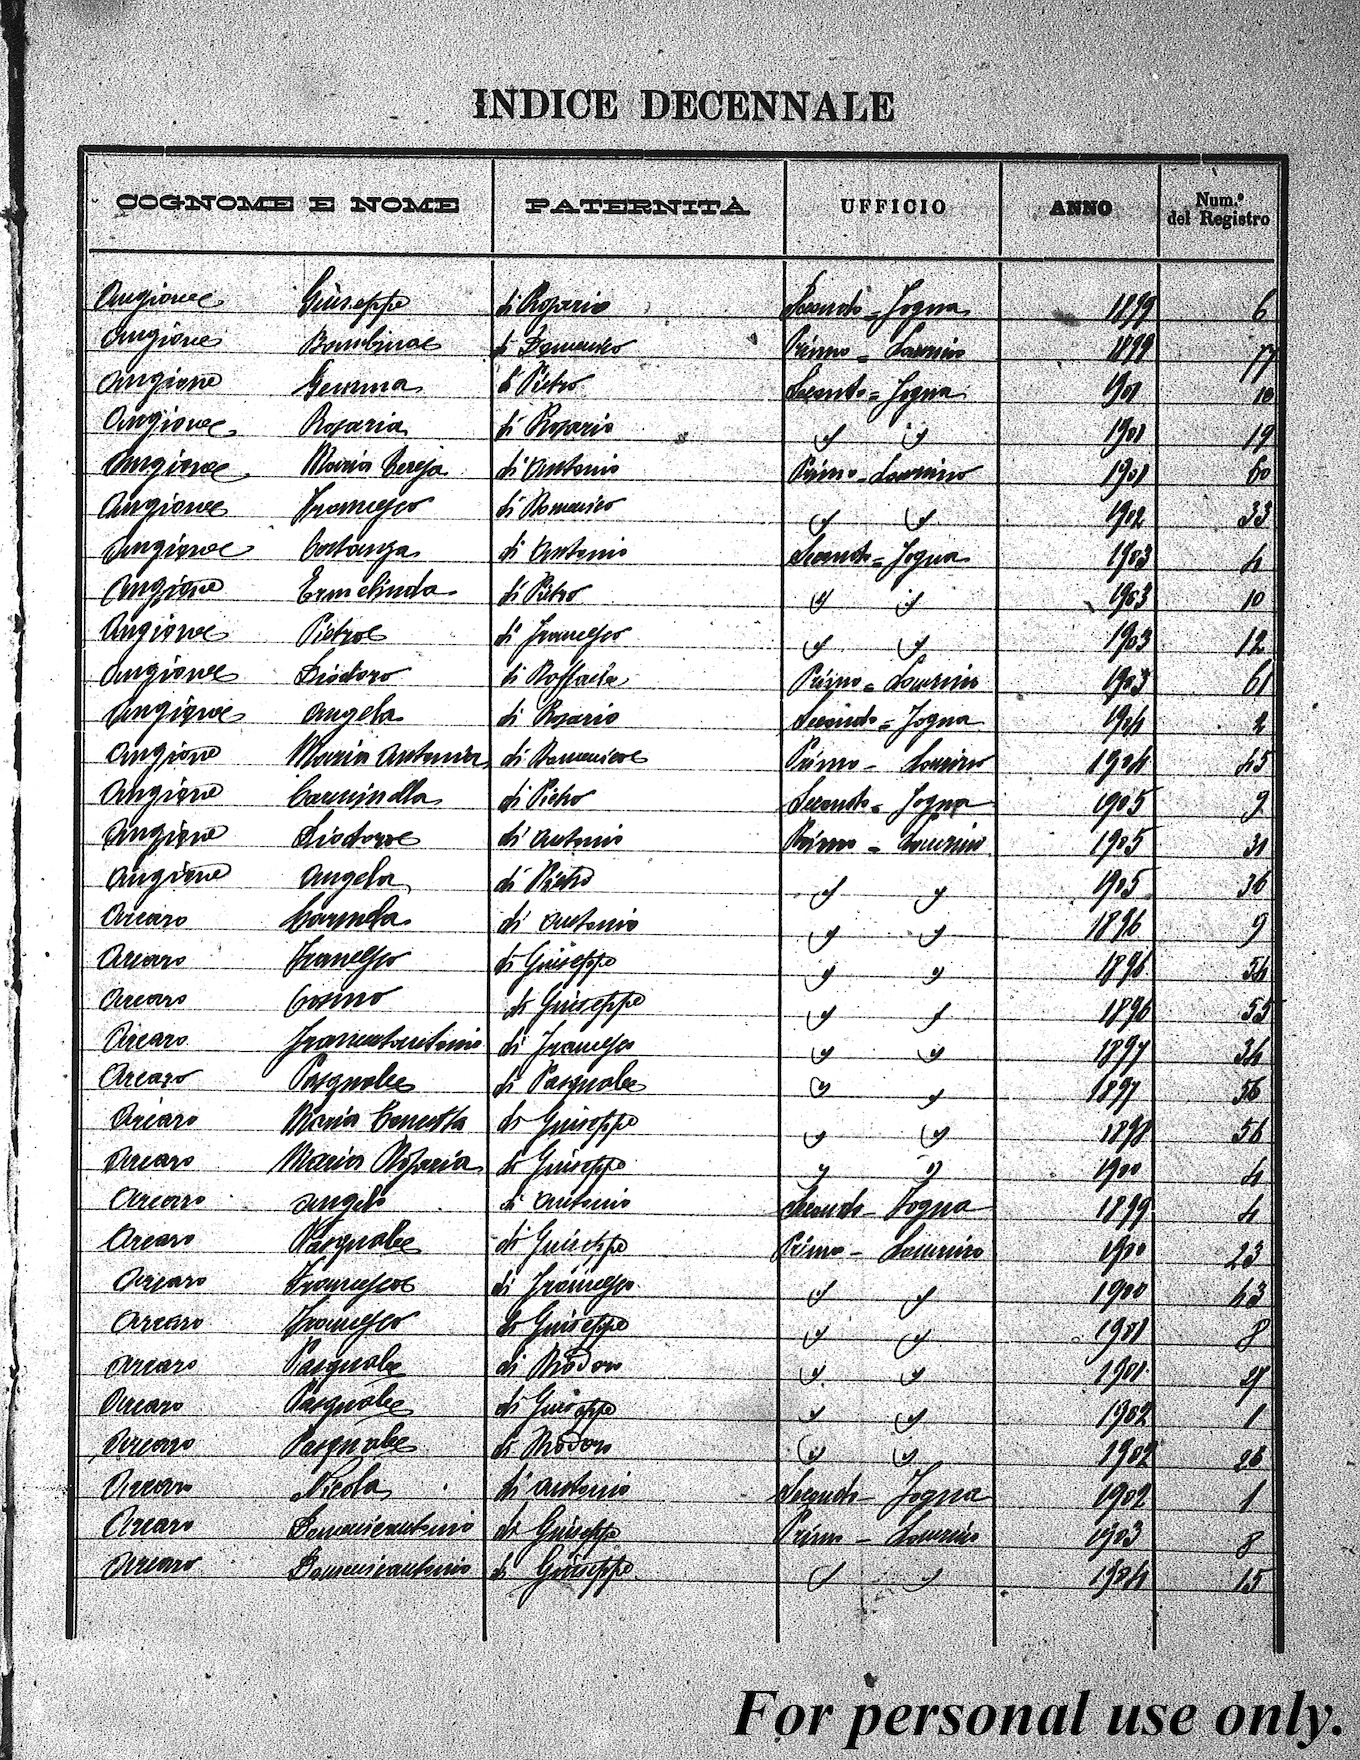 INDICE DECENNALE
COGNOME E NOME PATERNITÀ UFFICIO ANNO Num.º del Registro
Angione Giuseppe di Rosario Secondo = Jogna 1899 6
Angione Bambina di Domenico Primo = Laurino 1899 77
Angione Gemma di Pietro Secondo = Jogna 1901 10
Angione Rosaria di Rosario " " 1901 19
Angione Maria Teresa di Antonio Primo - Laurino 1901 60
Angione Francesco di Domenico " " 1902 33
Angione Costanza di Antonio Secondo = Jogna 1903 4
Angione Ermelinda di Pietro " " 1903 10
Angione Pietro di Francesco " " 1903 12
Angione Liodoro di Raffaele Primo = Laurino 1903 61
Angione Angela di Rosario Secondo = Jogna 1904 2
Angione Maria Antonia di Domenico Primo - Laurino 1904 45
Angione Carminella di Pietro Secondo = Jogna 1905 9
Angione Liodoro di Antonio Primo = Laurino 1905 31
Angione Angela di Pietro " " 1905 36
Arcaro Carmela di Antonio " " 1896 9
Arcaro Francesco di Giuseppe " " 1896 54
Arcaro Cosmo di Giuseppe " " 1896 55
Arcaro Francantonio di Francesco " " 1897 34
Arcaro Pasquale di Pasquale " " 1897 56
Arcaro Maria Concetta di Giuseppe " " 1898 56
Arcaro Maria Rosaria di Giuseppe " " 1900 4
Arcaro Angelo di Antonio Secondo - Jogna 1899 4
Arcaro Pasquale di Giuseppe Primo - Laurino 1900 23
Arcaro Francesco di Francesco " " 1900 43
Arcaro Francesco di Giuseppe " " 1901 8
Arcaro Pasquale di 1901 27
Arcaro Pasquale di Giuseppe " " 1902 1
Arcaro Pasquale di 1902 26
Arcaro Nicola di Antonio Secondo - Jogna 1902 1
Arcaro Domenicantonio di Giuseppe Primo - Laurino 1903 8
Arcaro Domenicantonio di Giuseppe " " 1904 15
For personal use only.